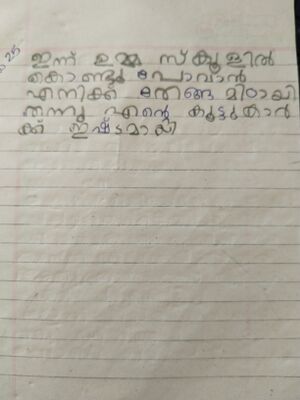 25
ഇന്ന് ഉമ്മ സ്കൂളിൽ
കൊണ്ടു പോവാൻ
എനിക്ക് തേങ്ങ മിഠായി
തന്നു എന്റെ കൂട്ടുകാൻ
ക്ക് ഇഷ്ടമായി